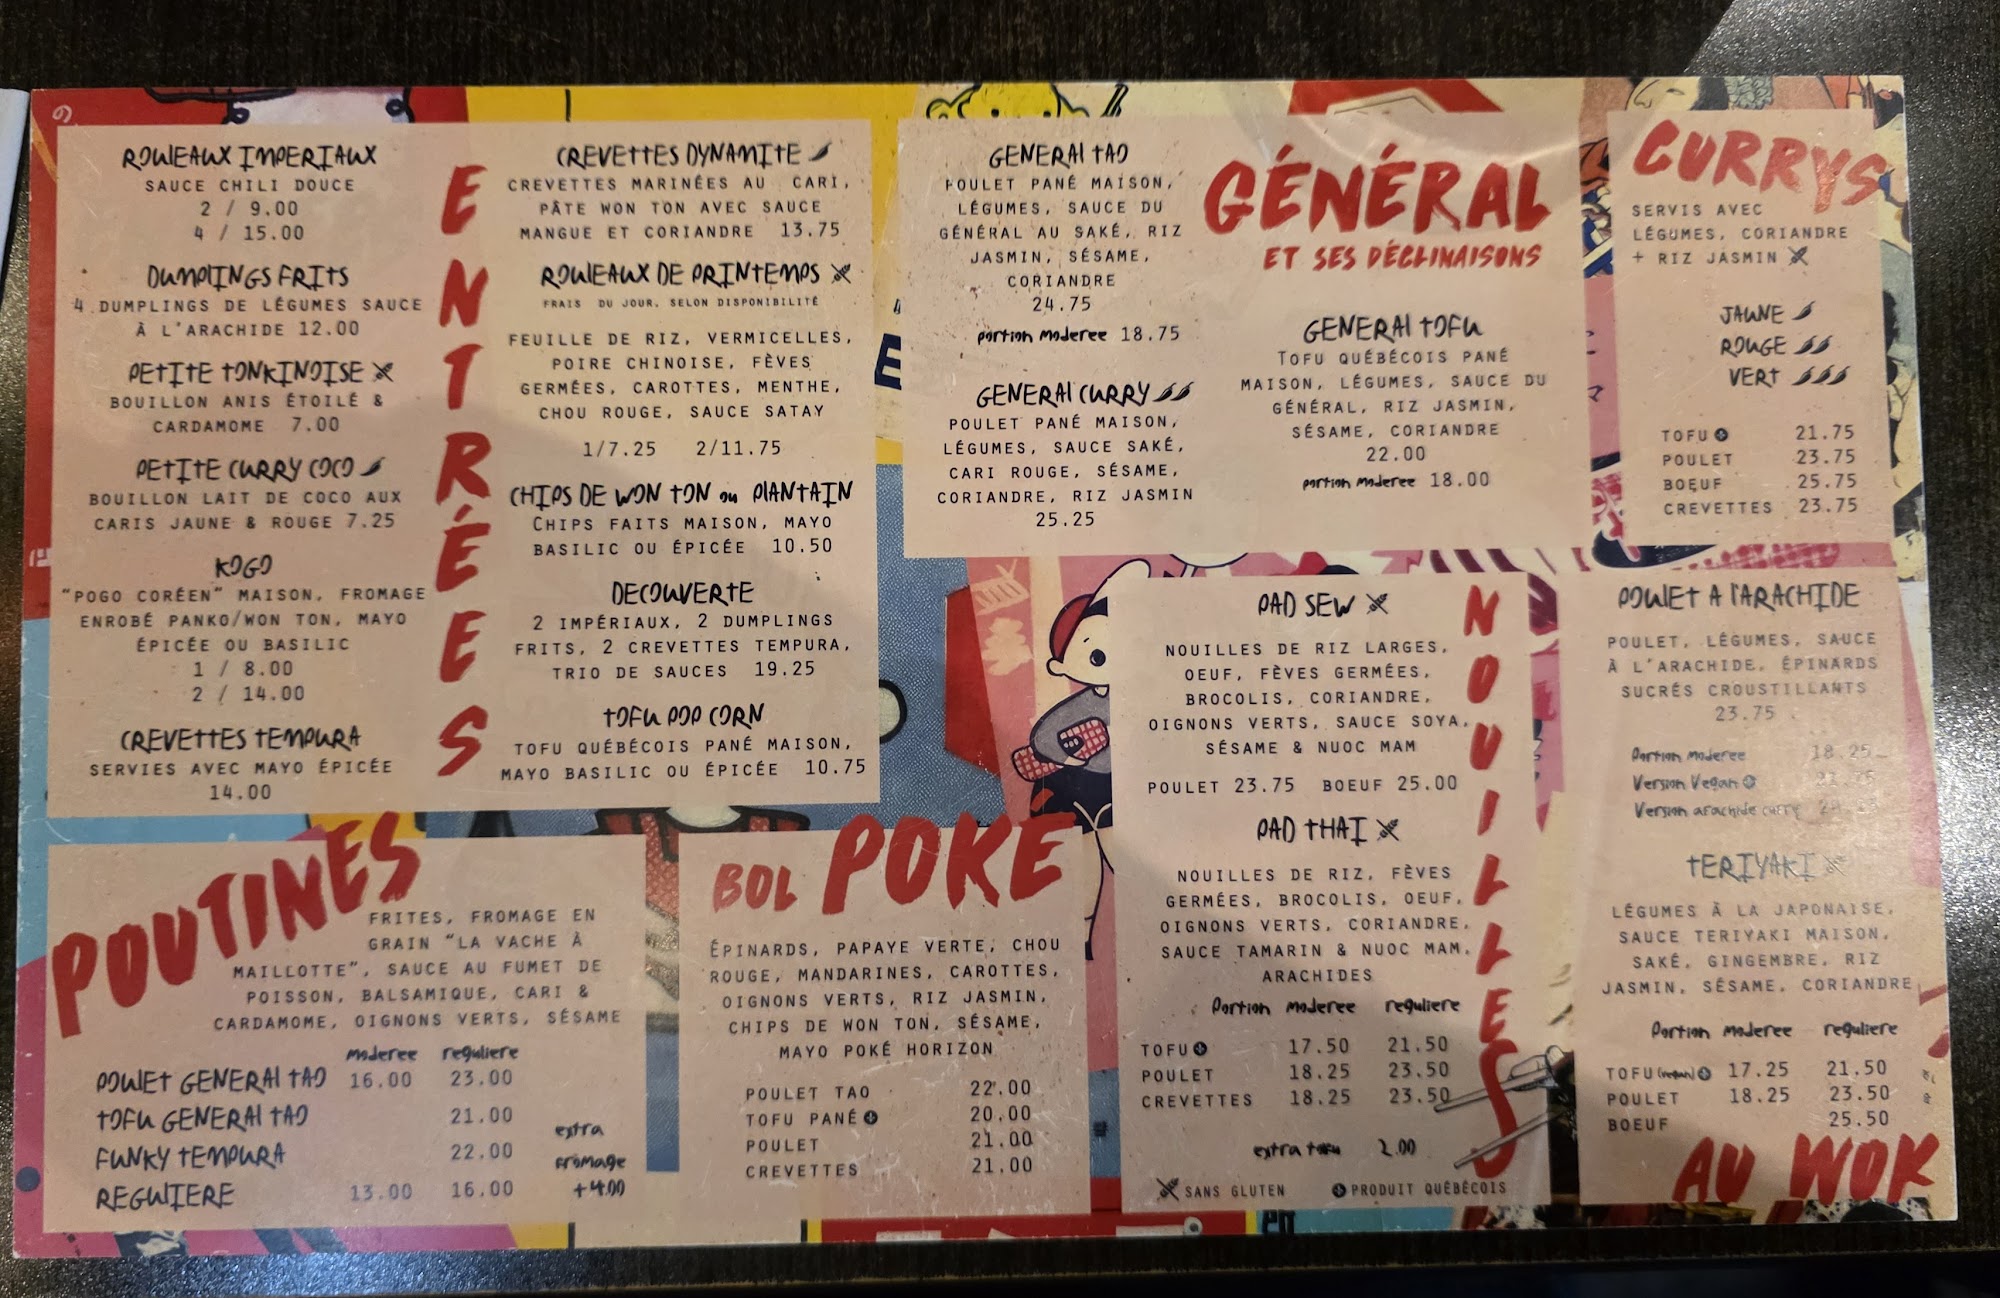 ENTRÉES
ROULEAUX IMPERIAUX
SAUCE CHILI DOUCE
2 / 9.00
4 / 15.00
DUMPLINGS FRITS
4 DUMPLINGS DE LÉGUMES SAUCE
À L'ARACHIDE 12.00
PETITE TONKINOISE
BOUILLON ANIS ÉTOILÉ &
CARDAMOME 7.00
PETITE CURRY COCO
BOUILLON LAIT DE COCO AUX
CARIS JAUNE & ROUGE 7.25
KOGO
"POGO CORÉEN" MAISON, FROMAGE
ENROBÉ PANKO/WON TON, MAYO
ÉPICÉE OU BASILIC
1 / 8.00
2 / 14.00
CREVETTES TEMPURA
SERVIES AVEC MAYO ÉPICÉE
14.00
CREVETTES DYNAMITE
CREVETTES MARINÉES AU CARI,
PÂTE WON TON AVEC SAUCE
MANGUE ET CORIANDRE 13.75
ROULEAUX DE PRINTEMPS
FRAIS DU JOUR, SELON DISPONIBILITÉ
FEUILLE DE RIZ, VERMICELLES,
POIRE CHINOISE, FÈVES
GERMÉES, CAROTTES, MENTHE,
CHOU ROUGE, SAUCE SATAY
1/7.25 2/11.75
CHIPS DE WON TON ou PLANTAIN
CHIPS FAITS MAISON, MAYO
BASILIC OU ÉPICÉE 10.50
DECOUVERTE
2 IMPÉRIAUX, 2 DUMPLINGS
FRITS, 2 CREVETTES TEMPURA,
TRIO DE SAUCES 19.25
TOFU POP CORN
TOFU QUÉBÉCOIS PANÉ MAISON,
MAYO BASILIC OU ÉPICÉE 10.75
GÉNÉRAL
ET SES DÉCLINAISONS
GENERAL TAO
POULET PANÉ MAISON,
LÉGUMES, SAUCE DU
GÉNÉRAL AU SAKÉ, RIZ
JASMIN, SÉSAME,
CORIANDRE
24.75
portion moderee 18.75
GENERAL CURRY
POULET PANÉ MAISON,
LÉGUMES, SAUCE SAKÉ,
CARI ROUGE, SÉSAME,
CORIANDRE, RIZ JASMIN
25.25
GENERAL TOFU
TOFU QUÉBÉCOIS PANÉ
MAISON, LÉGUMES, SAUCE DU
GÉNÉRAL, RIZ JASMIN,
SÉSAME, CORIANDRE
22.00
portion moderee 18.00
CURRYS
SERVIS AVEC
LÉGUMES, CORIANDRE
+ RIZ JASMIN
JAUNE
ROUGE
VERT
TOFU 21.75
POULET 23.75
BOEUF 25.75
CREVETTES 23.75
POUTINES
FRITES, FROMAGE EN
GRAIN "LA VACHE À
MAILLOTTE", SAUCE AU FUMET DE
POISSON, BALSAMIQUE, CARI &
CARDAMOME, OIGNONS VERTS, SÉSAME
moderee reguliere
POULET GENERAL TAO 16.00 23.00
TOFU GENERAL TAO 21.00
FUNKY TEMPURA 22.00
REGULIERE 13.00 16.00
extra
fromage
+4.00
BOL POKÉ
ÉPINARDS, PAPAYE VERTE, CHOU
ROUGE, MANDARINES, CAROTTES,
OIGNONS VERTS, RIZ JASMIN,
CHIPS DE WON TON, SÉSAME,
MAYO POKÉ HORIZON
POULET TAO 22.00
TOFU PANÉ 20.00
POULET 21.00
CREVETTES 21.00
NOUILLES
PAD SEW
NOUILLES DE RIZ LARGES,
OEUF, FÈVES GERMÉES,
BROCOLIS, CORIANDRE,
OIGNONS VERTS, SAUCE SOYA,
SÉSAME & NUOC MAM
POULET 23.75 BOEUF 25.00
PAD THAI
NOUILLES DE RIZ, FÈVES
GERMÉES, BROCOLIS, OEUF,
OIGNONS VERTS, CORIANDRE,
SAUCE TAMARIN & NUOC MAM,
ARACHIDES
Portion moderee reguliere
TOFU 17.50 21.50
POULET 18.25 23.50
CREVETTES 18.25 23.50
extra tofu 2.00
SANS GLUTEN PRODUIT QUÉBÉCOIS
POULET A l'ARACHIDE
POULET, LÉGUMES, SAUCE
À L'ARACHIDE, ÉPINARDS
SUCRÉS CROUSTILLANTS
23.75
Portion moderee 18.25
Version Vegan
Version arachide curry
TERIYAKI
LÉGUMES À LA JAPONAISE,
SAUCE TERIYAKI MAISON,
SAKÉ, GINGEMBRE, RIZ
JASMIN, SÉSAME, CORIANDRE
Portion moderee reguliere
TOFU (vegan) 17.25 21.50
POULET 18.25 23.50
BOEUF 25.50
AU WOK